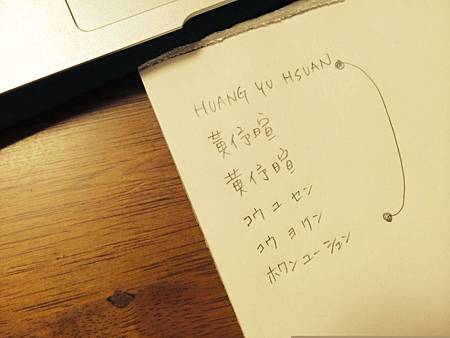 HUANG YU HSUAN
黃伃暄
黃伃暄
コウ ユ セン
コウ ヨ ケン
ホワンユーシェン